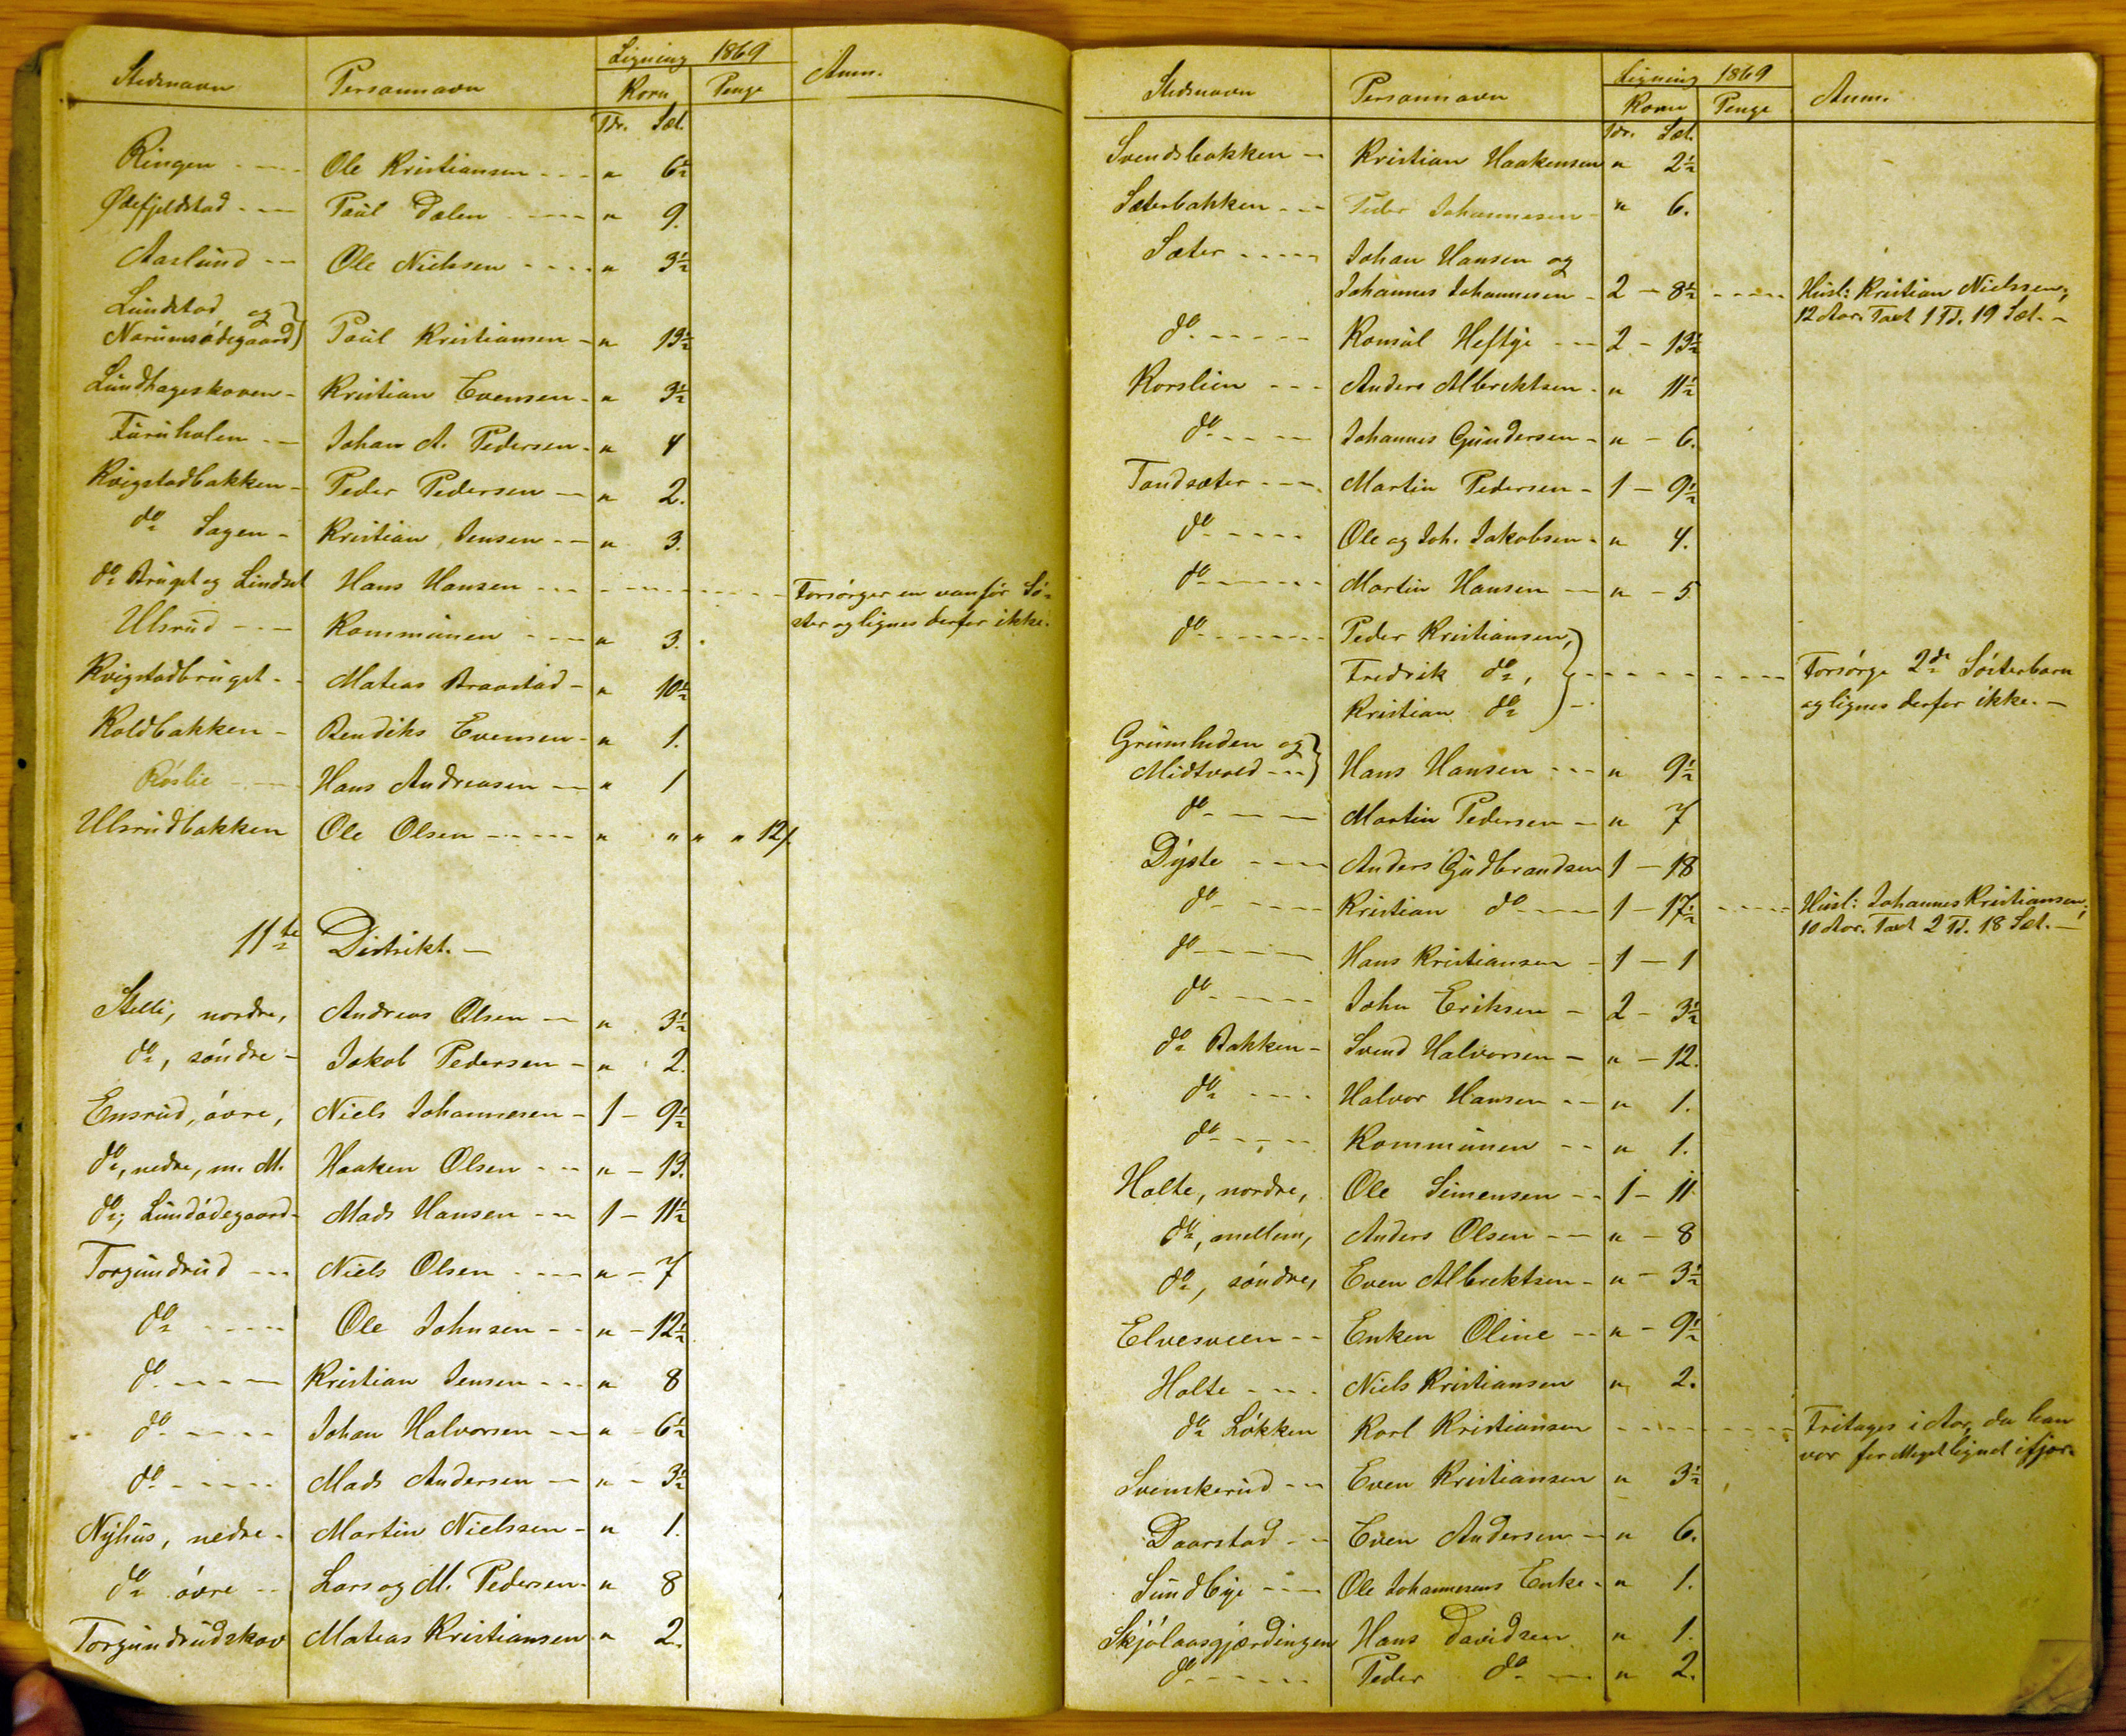 Stedsnavn Personnavn Ligning 1869 Anm.
Korn Penge
Tdr. Sæt.
Ringen - - - Ole Kristiansen - - - " 6½
Ødefjeldstad - - - Paul Dalen - - - " 9.
Aaslund - - Ole Nielssen - - - - " 3½
Lundstad og }
Narumsødegaard } Paul Kristiansen - " 13½
Lundhageskoven - Kristian Evensen - " 3½
Furuholen - - Johan A. Pedersen - " 4
Kvigstadbakken - Peder Pedersen - " 2.
do Sagen - Kristian Jensen - - " 3.
do Bruget og Lindset Hans Hansen - - - - - - Forsørger en vanfør Sø-
ster og lignes derfor ikke.
Ulsrud - - - Kommunen - - - " 3.
Kvigstadbruget - - Matias Braastad - " 10½
Koldbakken - Bendiks Evensen - " 1.
Røslie - - - Hans Andreasen - " 1
Ulsrudbakken Ole Olsen - - - - " " " " 12/.
11te Distrikt. -
Stelli, nordre, Andreas Olsen - " 3½
do, søndre - Jakob Pedersen - " 2.
Ensrud, øvre, Niels Johannesen - 1 - 9½
do, nedre, m. M. Haaken Olsen - - - " - 13.
do, Lundødegaard - Mads Hansen - - - 1 - 11½
Torgundrud - - - Niels Olsen - - - - " - 7
do - - - - Ole Johnsen - - " - 12½
do - - - - Kristian Jensen - - - " 8
do - - - - Johan Halvorsen - - " - 6½
do - - - - Mads Andersen - " - 3½
Nyhus, nedre - Martin Nielssen - " 1.
do øvre - - Lars og M. Pedersen - " 8
Torgundrudskov Matias Kristiansen " 2.
Stedsnavn Personnavn Ligning 1869 Anm.
Korn Penge
Tdr. Sæt.
Svendsbakken - Kristian Haakensen " 2½
Sæterbakken - - - Peder Johannesen - " 6.
Sæter - - - - - Johan Hansen og
Johannes Johannesen - 2 - 8½ - - - - Husl: Kristian Nielssen;
12 Aar. Taxt 1 Td. 19 Sæt. -
do - - - - - Konsul Heftye - - - 2 - 13½
Korslien - - - Anders Albrektsen - " 11½
do - - - - Johannes Gundersen - " - 6.
Tandsæter - - - Martin Pedersen - 1 - 9½
do - - - - Ole og Joh. Jakobsen - " 4.
do - - - - - Martin Hansen - - " - 5
do - - - - - Peder Kristiansen, }
Fredrik do, } - - - - - - - - Forsørge 2de Søsterbarn
Kristian do } - og lignes derfor ikke. -
Grumheden og }
Midtvold - - - } Hans Hansen - - - " 9½
do - - - Martin Pedersen - " 7
Dyste - - - - Anders Gudbrandsen 1 - 18
do - - - - Kristian do - - - 1 - 17½ - - - - Husl: Johannes Kristiansen;
10 Aar. Taxt 2 Td. 18 Sæt. -
do - - - - - Hans Kristiansen - 1 - 1
do - - - - - John Eriksen - 2 - 3½
do Bakken - Svend Halvorsen - " - 12.
do - - - - Halvor Hansen - - " 1.
do - - - - Kommunen - - " 1.
Holte, nordre, Ole Simensen - - 1 - 11
do, mellem, Anders Olsen - - " - 8
do, søndre, Even Albrektsen - " - 3½
Elvesveen - - Enken Oline - - " - 9½
Holte - - - - Niels Kristiansen " 2.
do Løkken Karl Kristiansen - - - - - - Fritages i Aar, da han
var for Meget lignet ifjor.
Svenskerud - - Even Kristiansen " 3½
Daarstad - - Even Andersen - " 6.
Sundbye - - - Ole Johannesens Enke - " 1.
Skjølaasgjærdingen Hans Davidsen " 1.
do - - - - - Peder do - - " 2.